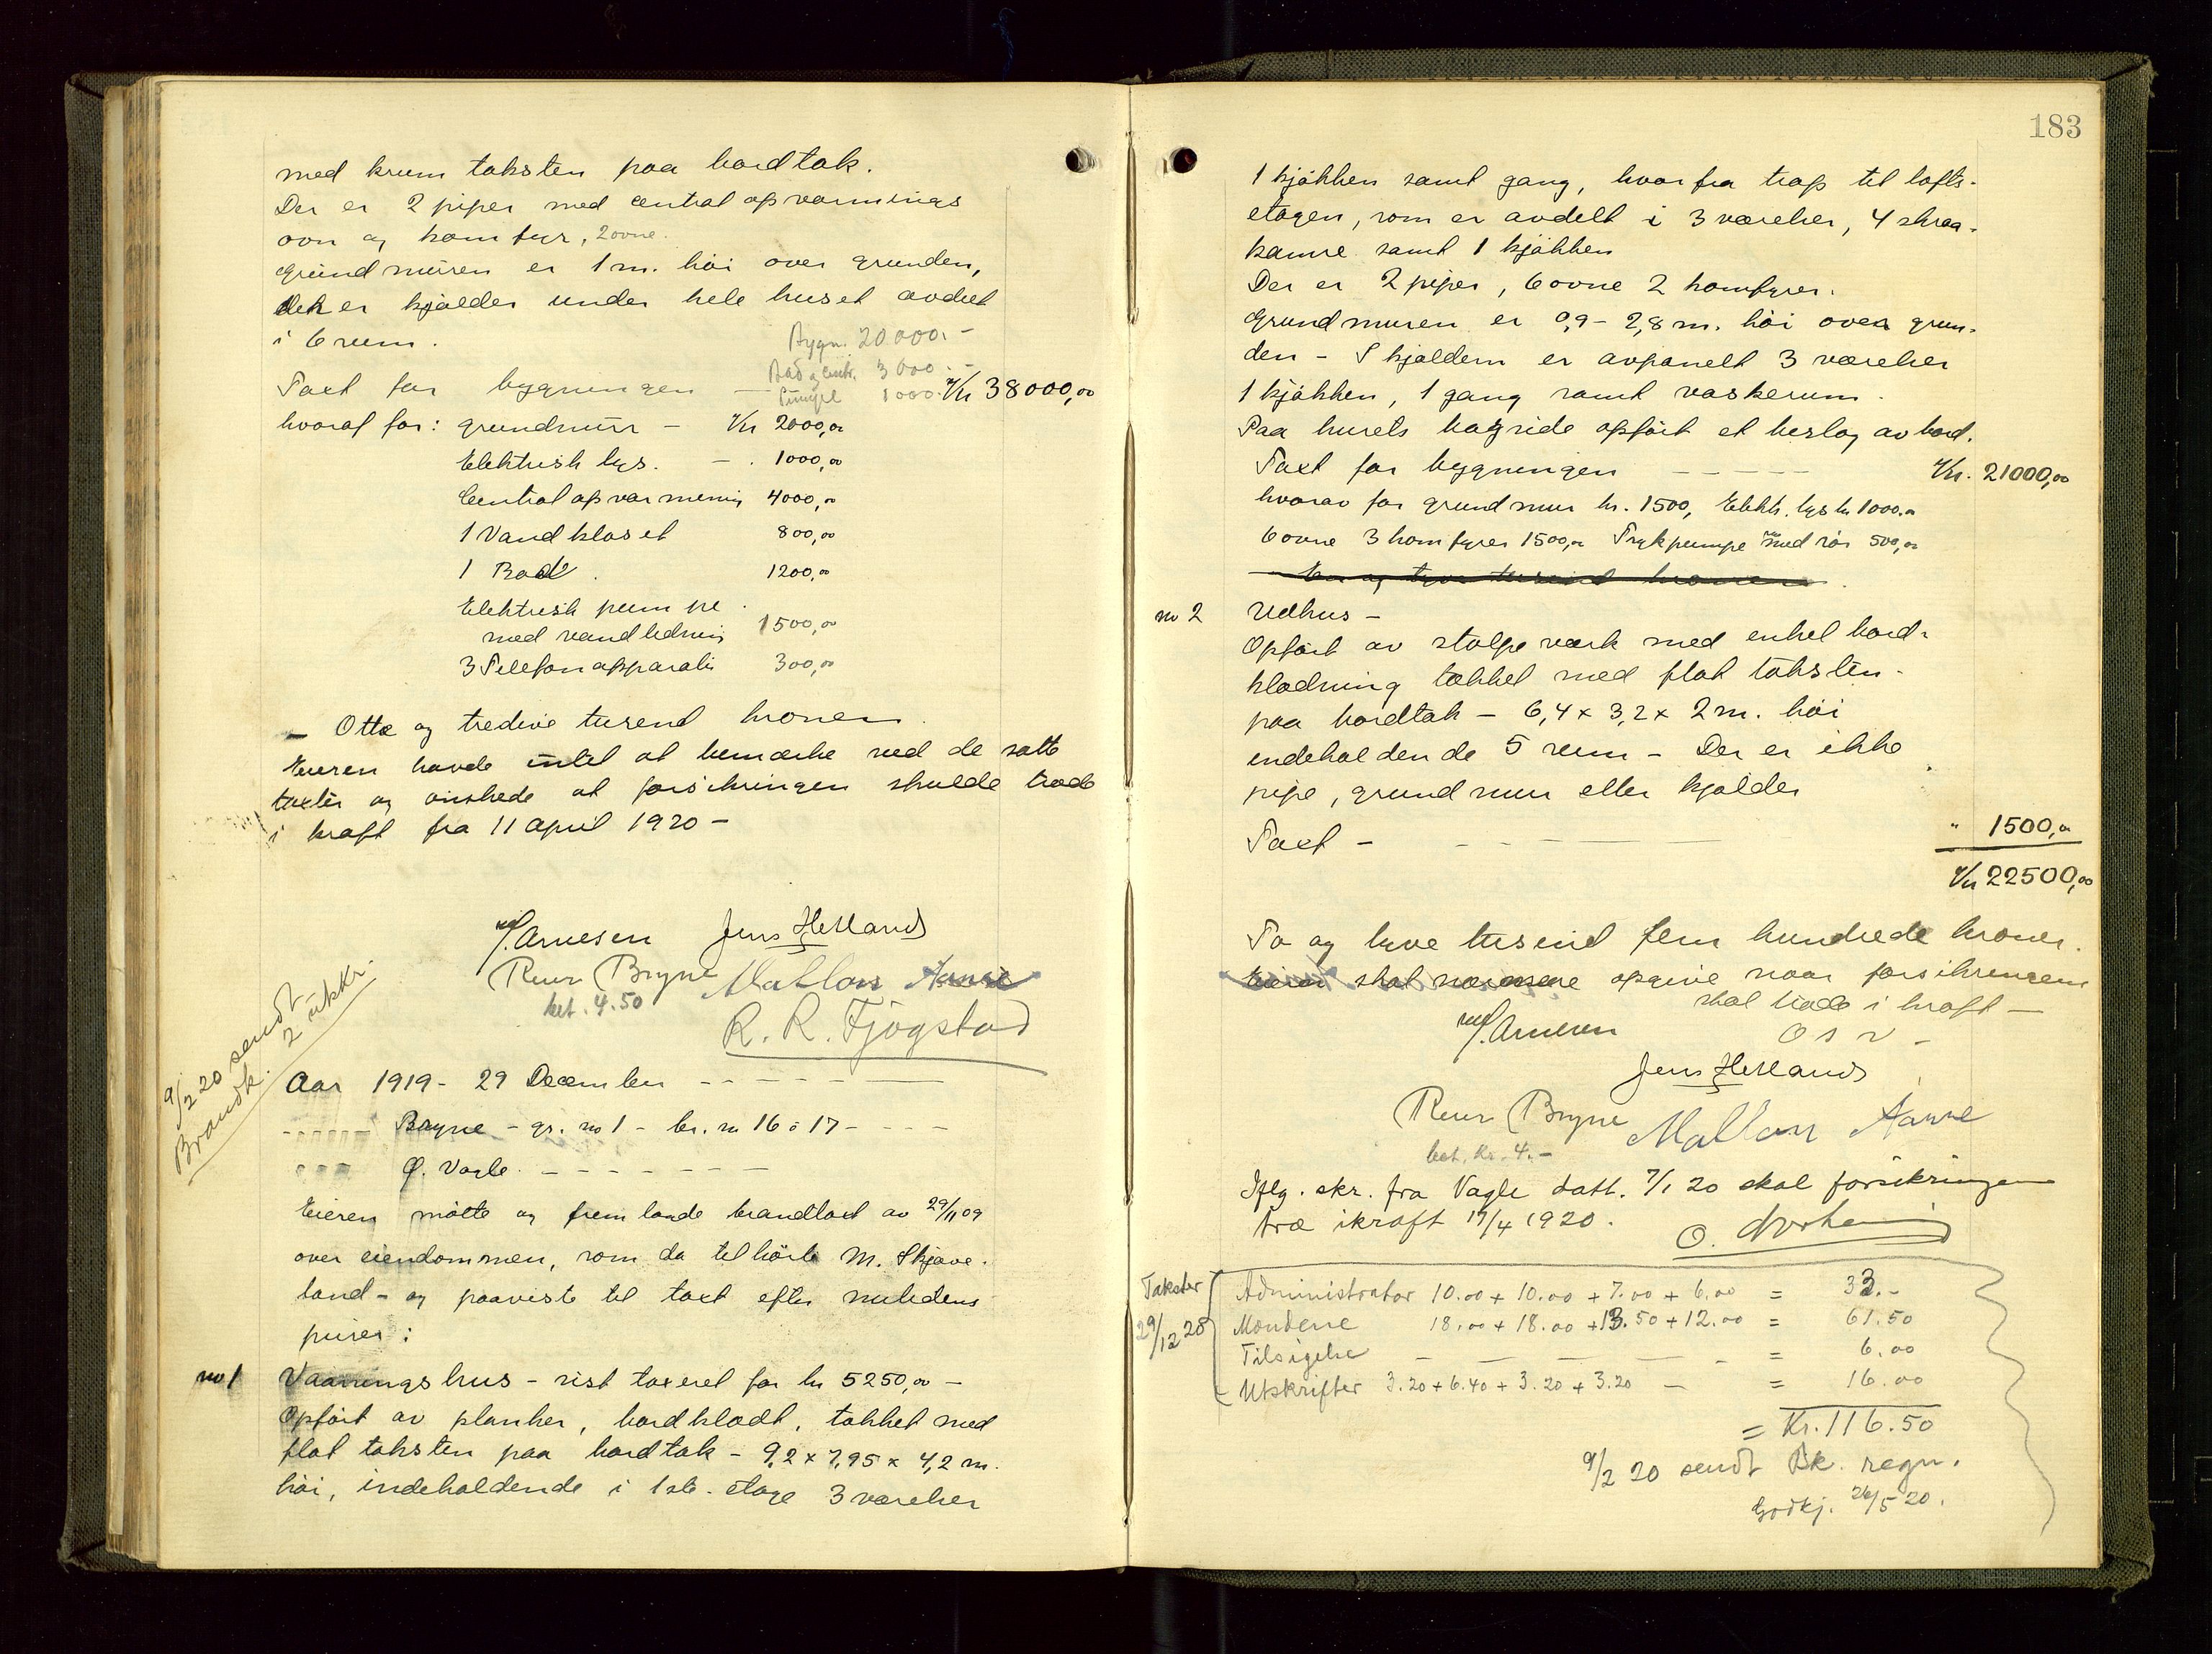 med krum taksten paa bordtak.
Der er 2 piper med central opvarmnings
ovn og komfyr, 2 ovne.
Grundmuren er 1 m. høi over grunden,
Der er kjælder under hele huset avdelt
i 6 rum.
Bygn. 20.000.-
Bad & centr. 3000.-
Pumpe 1000
Taxt for bygningen — Kr 38000,00
hvoraf for: grundmur - Kr 2000,00
Elektrisk lys. - 1000,00
Centralopvarmning 4000,00
1 Vandkloset 800,00
1 Bad 1200,00
Elektrisk pumpe
med vandledning 1500,00
3 Telefonapparater 300,00
- Otte og tredive tusend kroner
Eieren havde intet at bemærke ved de satte
taxter og ønskede at forsikringen skulde træde
i kraft fra 11 april 1920 -
Arnesen Jens Hetland
Reier Bryne
bet. 4.50
R. R. Fjogstad
9/2 20 sendt
Brandk. 2 utkkr.
Aar 1919 - 29 December - - - -
Bryne - gr. no 1 - br. no 16 o 17 - - - -
O. Vagle - - - - - -
Eieren møtte og fremlagde brandtaxt av 29/11 09
over eiendommen, som da tilhørte M. Skjæve-
land - og paaviste til taxt efter nutidens
priser:
no 1 Vaaningshus - sist taxeret for kr 5250,00 -
Opført av planker, bordklædt, tækket med
flat taksten paa bordtak - 9,2 x 7,95 x 4,2 m.
høi, indeholdende i 1ste etage 3 værelser
183
1 kjøkken samt gang, hvorfra trap til lofts-
etagen, som er avdelt i 3 værelser, 4 skraa-
kamre samt 1 kjøkken
Der er 2 piper, 6 ovne 2 komfyrer.
Grundmuren er 0,9 - 2,8 m. høi over grun-
den - I kjælderen er avpanelt 3 værelser
1 kjøkken, 1 gang samt vaskerum.
Paa husets bagside opført et beslag av bord.
Taxt for bygningen - - - - - Kr. 21000,00
hvorav for grundmur kr. 1500, Elektr. lys kr 1000.00
6 ovne 3 komfyrer 1500,00 Trykpumpe med rør 500,00
En og tyve tusind kroner
no 2 Udhus -
Opført av stolpeværk med enkel bord-
klædning tækket med flat taksten
paa bordtak - 6,4 x 3,2 x 2 m. høi
indeholdende 5 rum - Der er ikke
pipe, grundmur eller kjælder
Taxt - - - - - " 1500,00
Kr 22500,00
To og tyve tusind fem hundrede kroner.
Eieren skal nærmere opgive naar forsikringen
skal træde i kraft —
O S V -
Arnesen
Jens Hetland
Reier Bryne
bet. Kr. 4.-
Iflg. skr. fra Vagle datt. 7/1 20 skal forsikringen
træ ikraft 17/4 1920.
Takster
29/12 20
Administrator 10.00 + 10.00 + 7.00 + 6.00 = 33.-
Mændene 18.00 + 18.00 + 13.50 + 12.00 = 61.50
Tilsigelse - - - - = 6.00
Utskrifter 3.20 + 6.40 + 3.20 + 3.20 - = 16.00
= Kr. 116.50
9/2 20 sendt Bk. regn.
Godkj. 26/5 20.